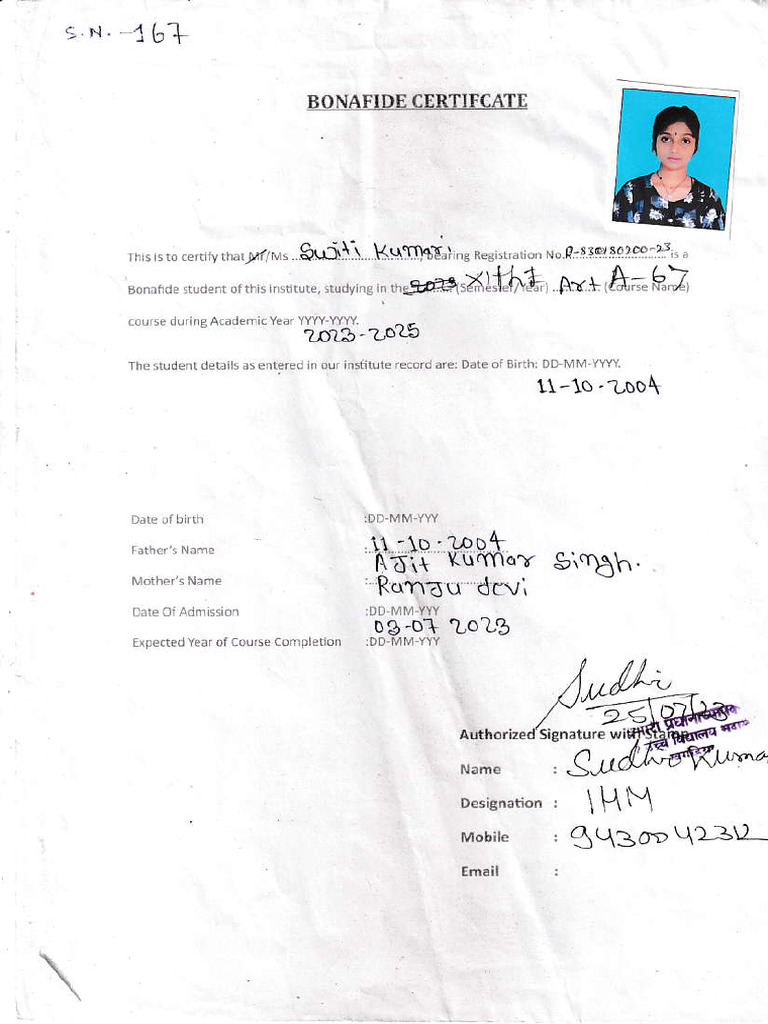 S.N. -167
BONAFIDE CERTIFCATE
This is to certify that Mr/Ms ... Switi Kumari bearing Registration No. R-830180200-23 is a
Bonafide student of this institute, studying in the 2023 XIth (Semester/Year) Art A-67 (Course Name)
course during Academic Year YYYY-YYYY.
2023-2025
The student details as entered in our institute record are: Date of Birth: DD-MM-YYYY.
11-10-2004
Date of birth :DD-MM-YYY
11-10-2004
Father's Name : Ajit Kumar Singh.
Mother's Name : Ranju devi
Date Of Admission :DD-MM-YYY
03-07 2023
Expected Year of Course Completion :DD-MM-YYY
Sudhir
25/07/23
Authorized Signature with Stamp
उच्च विद्यालय
Name : Sudhir Kumar
Designation : IHM
Mobile :
Email :